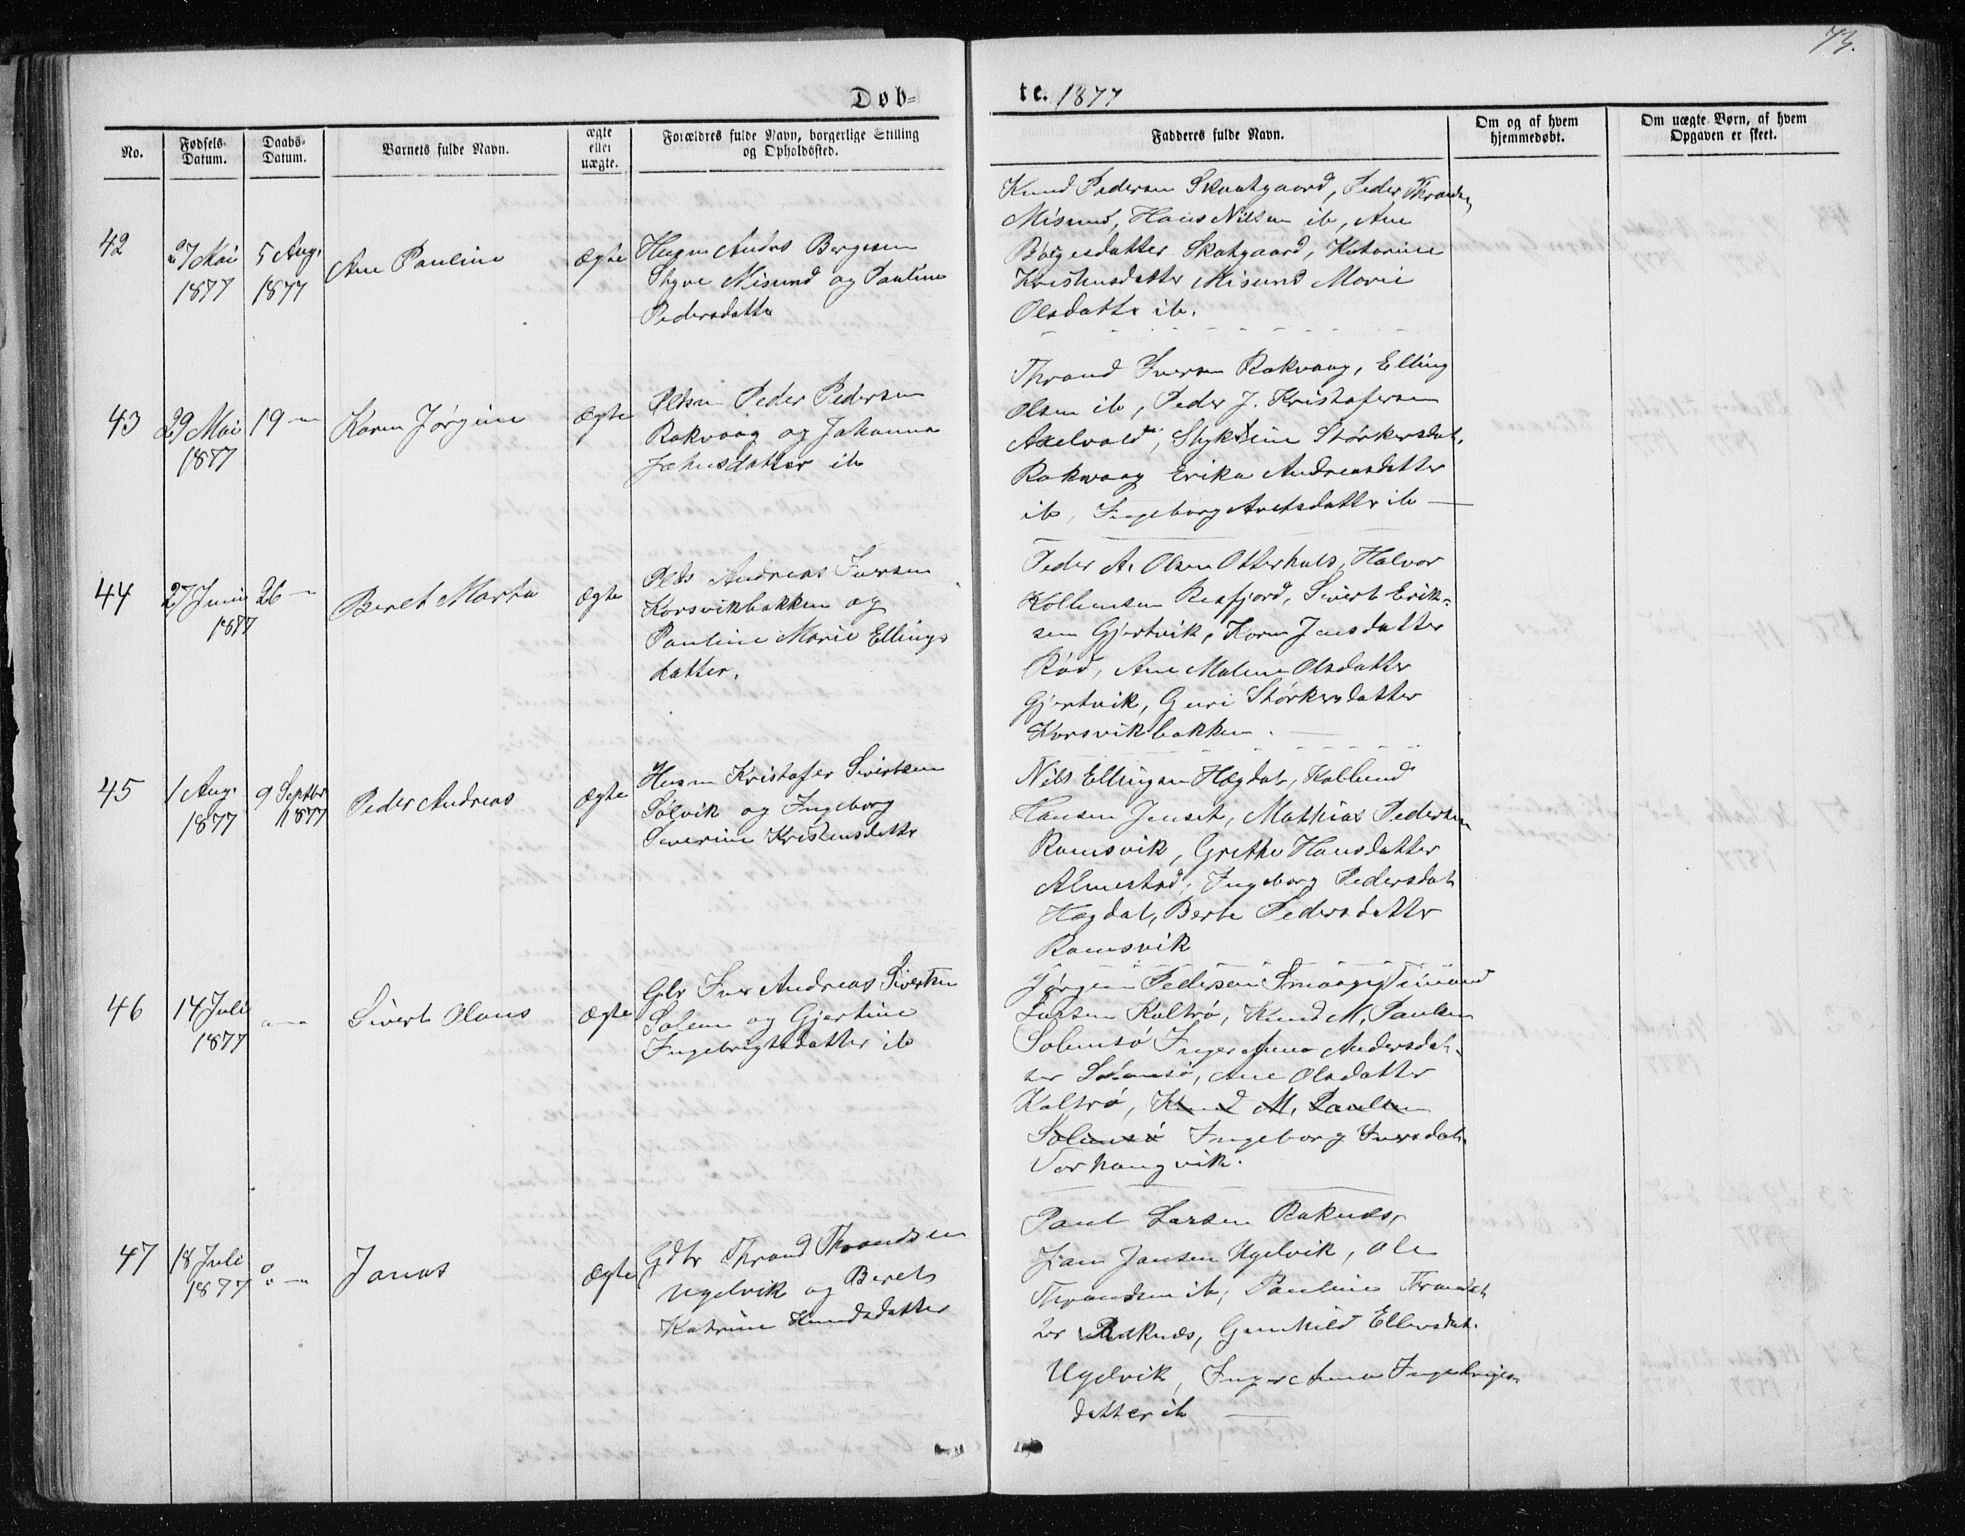 73.
Døb-
te. 1877
No.
Fødsels-Datum.
Daabs-Datum.
Barnets fulde Navn.
ægte eller uægte.
Forældres fulde Navn, borgerlige Stilling og Opholdssted.
Fadderes fulde Navn.
Om og af hvem hjemmedøbt.
Om uægte Børn, af hvem Opgaven er skeet.
42
27 Mai
1877
5 Aug.
1877
Ane Pauline
Ægte
Husm Anders Bergesen
Myve Misund og Pauline
Pedersdatter
Knud Pedersen Skaatgaard, Peder Throndsen
Misund, Hans Nilsen ib, Ane
Børgesdatter Skatgaard, Katarine
Kristensdatter Misund Marie
Olsdatter ib.
43
29 Mai
1877
19 —
Karen Jørgine
Ægte
Peder Pedersen
Rakvaag og Johanna
Johnsdatter ib
Thrond Iversen Rakvaag, Elling
Olsen ib, Peder J. Kristofersen
Axelvold, Størkersdat.
Rakvaag Erika Andreasdatter
ib, Ingeborg datter ib —
44
27 Juni
1877
26 —
Beret Marta
Ægte
Andreas Iversen
Korsvikbakken og
Pauline Marie Ellings
datter.
Peder A. Olsen Otterhals, Halvor
Kolbensen Resfjord, Sivert Erik-
sen Gjertvik, Karen Jensdatter
Rød, Ane Malene Olsdatter
Gjertvik, Guri Størkersdatter
Korsvikbakken. —
45
1 Aug.
1877
9 Septbr
1877
Peder Andreas
Ægte
Husm Kristofer Sivertsen
Solvik og Ingeborg
Severine Kristensdatter
Nils Ellingsen Hægdal, Kolbend
Hansen Jenset, Mathias Pedersen
Ramsvik, Grethe Hansdatter
Almestad, Ingeborg Pedersdat
Hægdal, Berte Pedersdatter
Ramsvik
46
14 Juli
1877
Sivert Olaus
Ægte
Iver Andreas Sivertsen
Solem og Gjertine
Ingebrigtsdatter ib
Jørgen Pedersen Smaage,
Larsen Kaltrø, Knud M. Paulsen
Solemsø Inger Anna Andersdat-
ter Solemsø, Ane Olsdatter
Kaltrø, Knud M. Paulsen
Solemsø Ingeborg Iversdat.
Torhaugvik.
47
18 Juli
1877
Jonas
Ægte
Gdbr Thrond Throndsen
Ugelvik og Beret
Katrine Knudsdatter
Paul Larsen Raknæs,
Jansen Ugelvik, Ole
Throndsen ib, Pauline Throndsdat
ter Raknæs, Gunhild Ellensdat.
Ugelvik, Inger Anna Ingebrigts
datter ib —